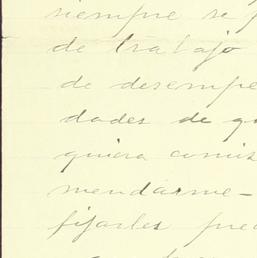 siempre se
de trabajo
de desempe
dades de
quiera comis
mendarme-
fijarles